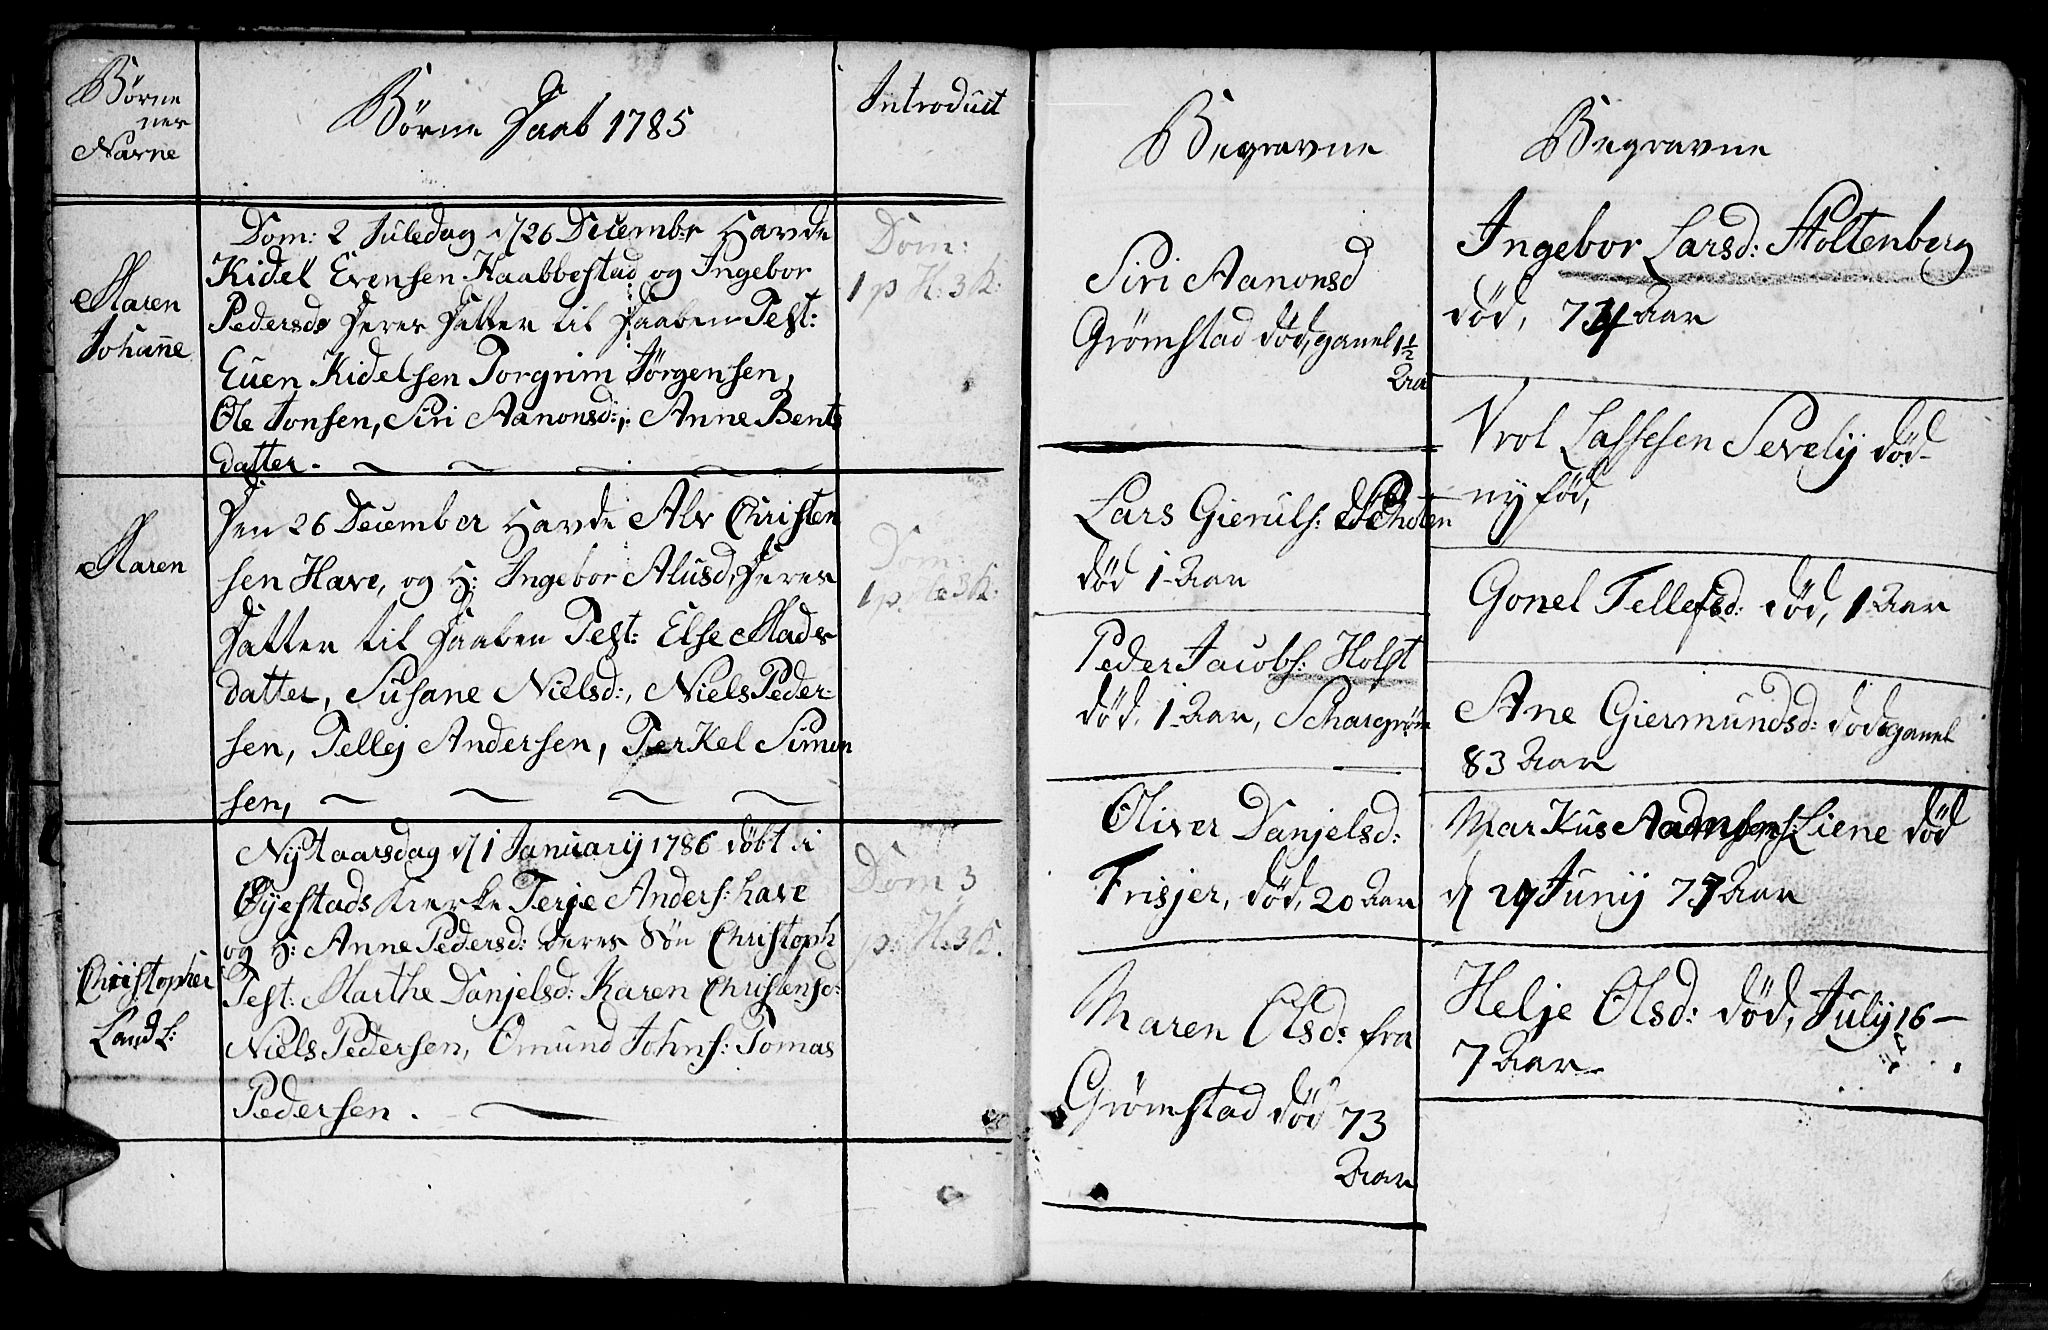 Børne
nes
Navne
Børne Daab 1785
Introduct
Maren
Johanne
Dom: 2 Juledag d 26 Decembr Havde
Kidel Evensen Haabbestad og Ingebor
Pedersd: Deres Datter til Daaben Test:
Even Kidelsen Torgrim Jörgensen,
Ole Jonsen, Siri Aanonsd:, Anne Bents
datter.
Dom:
1 p. H: 3 K:
Maren
Den 26 December Havde Alv Christen
sen Have, og H: Ingebor Alusd, Deres
Datter til Daaben Test: Else Mads
datter, Susane Nielsd:, Niels Peder-
sen, Tellej Andersen, Terkel Simon
sen,
Dom:
1 p. 3 K:
Christopher
Land L:
Nytaarsdag d 1 January 1786 döbt i
Øyestads Kierke Terje Anders: Have
og H: Anne Pedersd: deres Søn Christoph
Test: Marthe Danjelsd: Karen Christensd:
Niels Pedersen, Omund Johns: Tomas
Pedersen.
Dom 3
p. H: 3 K.
Begravne
Siri Aanonsd
Grømstad död, gamel 1 1/2
Aar
Lars Gieruls:
död 1 Aar
Peder Jacobs: Holst
död. 1 Aar,
Oliver Danjelsd:
Frisjer, död, 20 Aar
Maren Olsd: fra
Grømstad död 73
Aar
Begravne
Ingebor Larsd: Stoltenberg
död, 74 Aar
Vrol Lassesen Sevely död
ny föd,
Gonel Tellefsd: död, 1 Aar
Ane Giermundsd: död gamel
83 Aar
Markus Liene död
d Junij 77 Aar
Helje Olsd: död, July 16
7 Aar